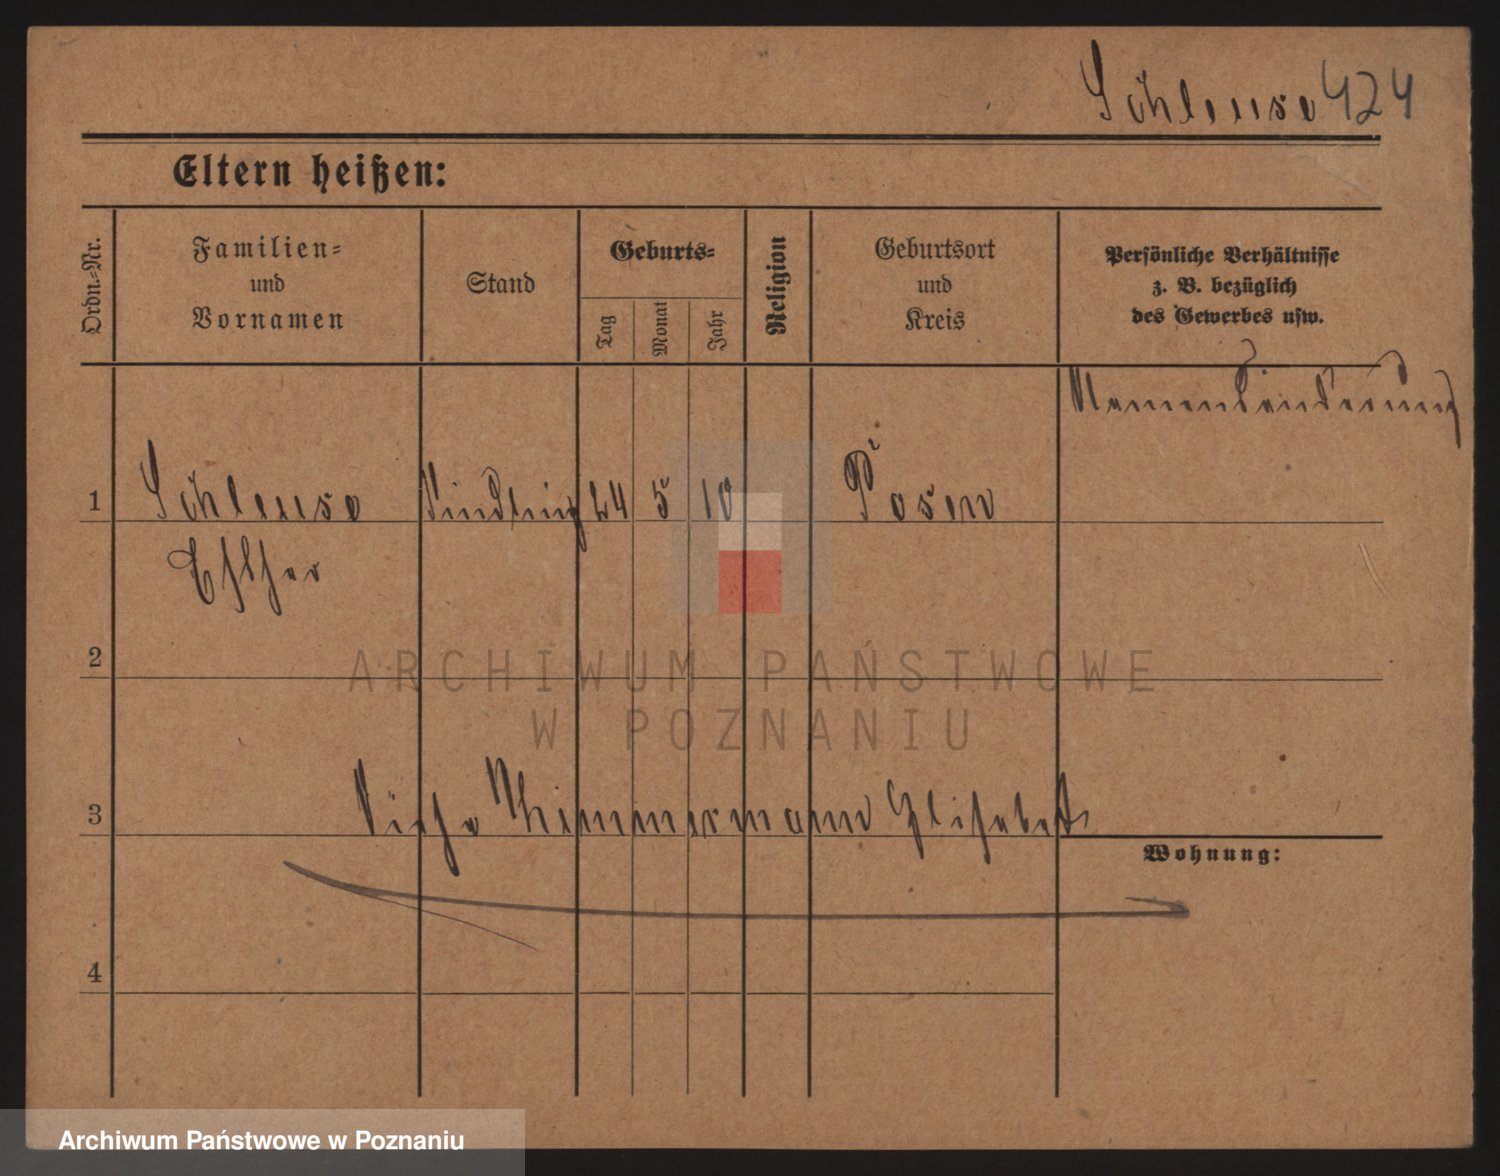 Schleuse 424
Eltern heißen:
Ordn.-Nr.
Familien-
und
Vornamen
Stand
Geburts-
Tag
Monat
Jahr
Religion
Geburtsort
und
Kreis
Persönliche Verhältnisse
z. B. bezüglich
des Gewerbes usw.
Namensänderung
1 Schleuse Findling 24 5 10 Posen
Esther
2
ARCHIWUM PAŃSTWOWE
W POZNANIU
3 Siehe Zimmermann Elisabeth
Wohnung:
4
Archiwum Państwowe w Poznaniu